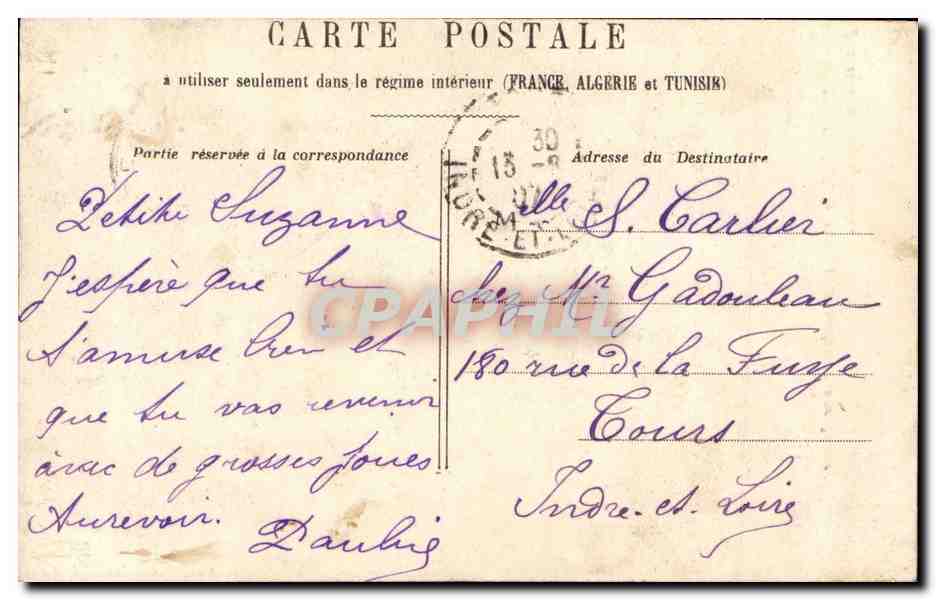 CARTE POSTALE
à utiliser seulement dans le régime intérieur (FRANCE, ALGERIE et TUNISIE)
Partie réservée à la correspondance
Petite Suzanne
J'espère que tu
t'amuse bien et
que tu vas revenir
avec de grosses joues
Aurevoir.
Adresse du Destinataire
Mlle S. Carlier
chez Mr Gadouleau
180 rue de la Fuye
Tours
Indre-et-Loire
30
13 -8
INDRE-ET-L
CPAPHIL